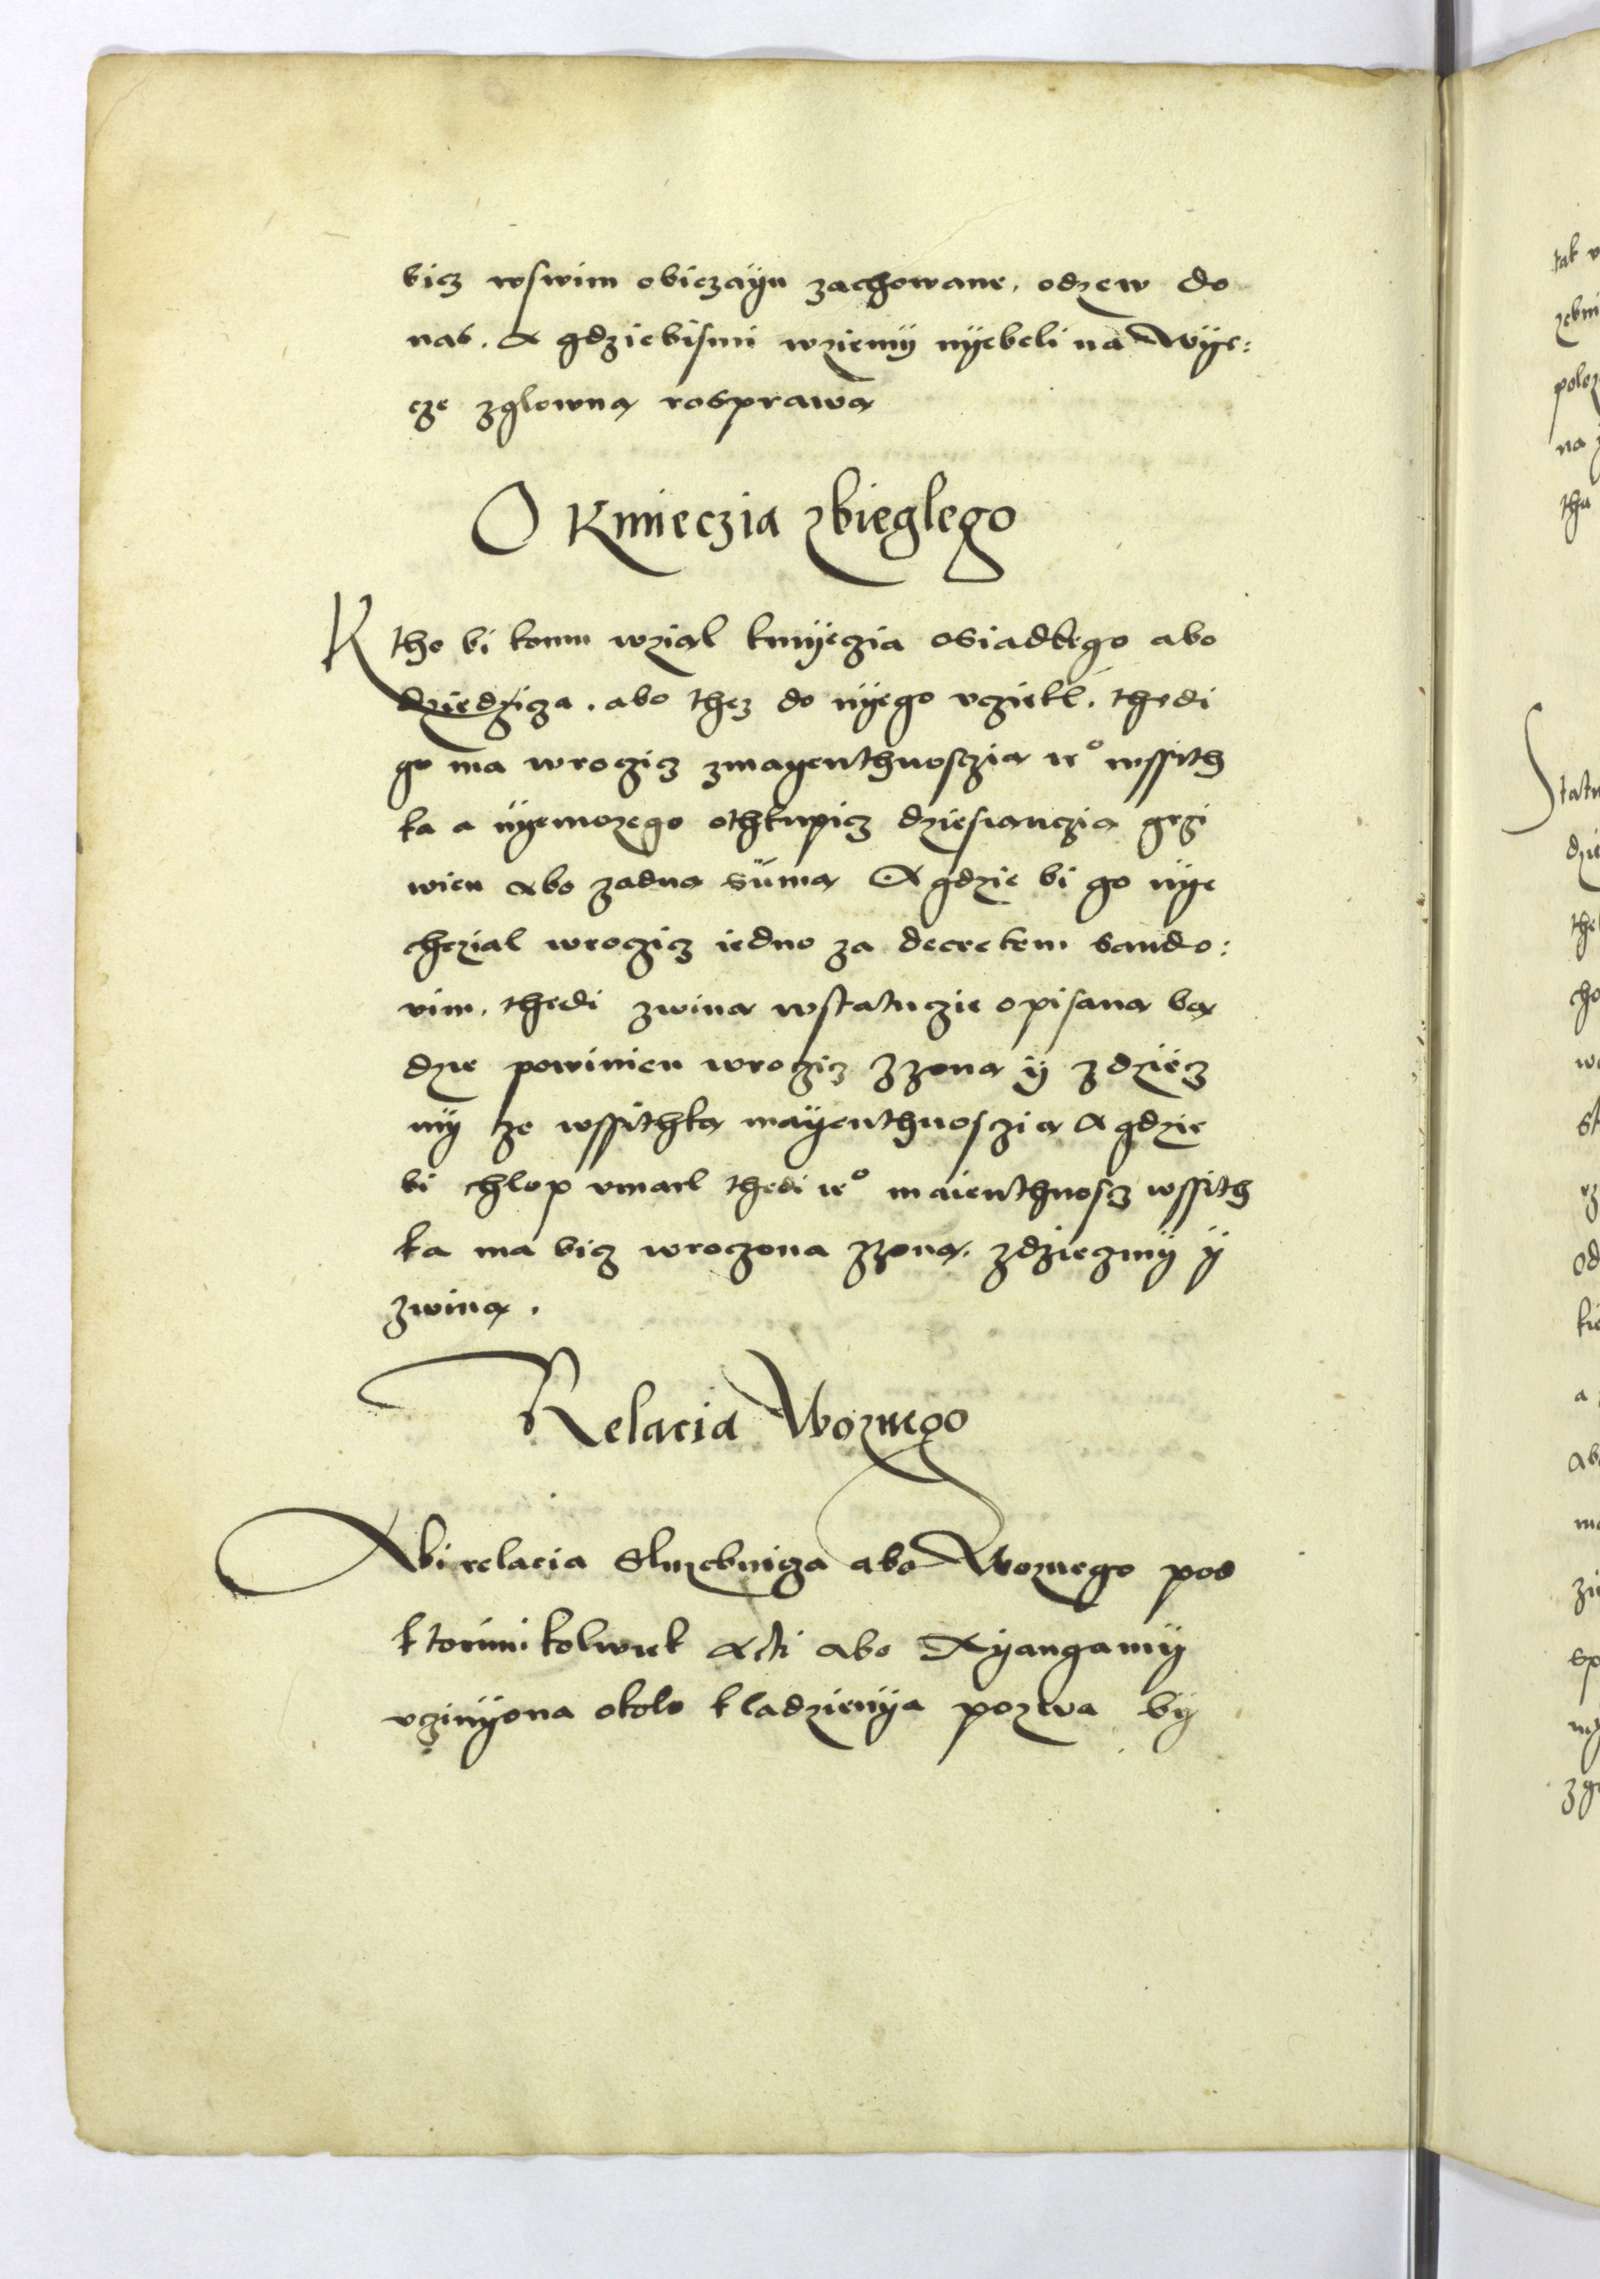 bicz wswim obiczayu zachowane, odzew do
nas. A gdziebismi wziemÿ nÿebeli na Wÿe:
cze zglowną rosprawą
O Kmieczia zbieglego
Ktho bi komu wzial kmÿeczia osiadlego abo
dziedzicza. abo thez do nÿego vcziekl. thedi
go ma wroczicz zmayenthnosczią ieº wssith
ka a nÿemozego othkupicz dziesianczią grzi
wien abo zadną sumą A gdzie bi go nÿe
chczial wroczicz iedno za decretem sando:
vim. thedi zwiną wstatuczie opisaną bą
dzie powinien wroczicz Zzoną ÿ zdziecz
mÿ ze wssithką mayenthnosczią A gdzie
bi chlop vmarl thedi ieº maienthnoscz wssith
ka ma bicz wroczona zzoną. zdzieczmÿ ÿ
zwiną.
Relacia Woznego
Abi relacia Sluzebnicza abo Woznego pod
ktorimikolwiek Acti abo Xÿangamÿ
vczinÿona okolo kladzienÿa pozwa bÿ